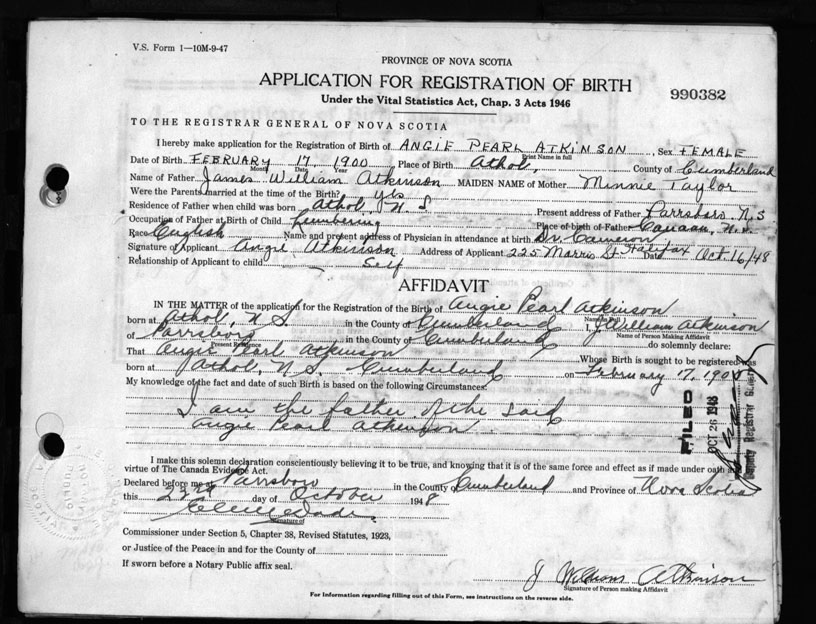 V.S. Form 1—10M-9-47
PROVINCE OF NOVA SCOTIA
APPLICATION FOR REGISTRATION OF BIRTH
990382
Under the Vital Statistics Act, Chap. 3 Acts 1946
TO THE REGISTRAR GENERAL OF NOVA SCOTIA
I hereby make application for the Registration of Birth of ANGIE PEARL ATKINSON, Sex FEMALE
Print Name in full
Date of Birth FEBRUARY 17, 1900, Place of Birth Athol, County of Cumberland
Month Date Year
Name of Father James William Atkinson MAIDEN NAME of Mother Minnie Taylor
Were the Parents married at the time of the Birth? yes
Residence of Father when child was born Athol, N.S. Present address of Father Parrsboro N.S
Occupation of Father at Birth of Child Lumbering Place of birth of Father Canaan, N.S.
Race English Name and present address of Physician in attendance at birth Dr.
Signature of Applicant Angie Atkinson Address of Applicant 225 Morris St Halifax Date Oct. 16/48
Relationship of Applicant to child Self
AFFIDAVIT
IN THE MATTER of the application for the Registration of the Birth of Angie Pearl Atkinson
Name in Full
born at Athol, N.S. in the County of Cumberland I, J William Atkinson
Name of Person Making Affidavit
of Parrsboro in the County of Cumberland do solemnly declare:
Present Residence
That Angie Pearl Atkinson Whose Birth is sought to be registered was
born at Athol, N.S. Cumberland on February 17, 1900
My knowledge of the fact and date of such Birth is based on the following Circumstances:
I am the father of the said
Angie Pearl Atkinson.
FILED
OCT 26 1948
Deputy Registrar General
I make this solemn declaration conscientiously believing it to be true, and knowing that it is of the same force and effect as if made under oath
virtue of The Canada Evidence Act.
Declared before me at Parrsboro in the County Cumberland and Province of Nova Scotia
this 22nd day of October 1948
Signature of
Commissioner under Section 5, Chapter 38, Revised Statutes, 1923,
or Justice of the Peace in and for the County of
If sworn before a Notary Public affix seal.
J William Atkinson
Signature of Person making Affidavit
For Information regarding filling out of this Form, see instructions on the reverse side.